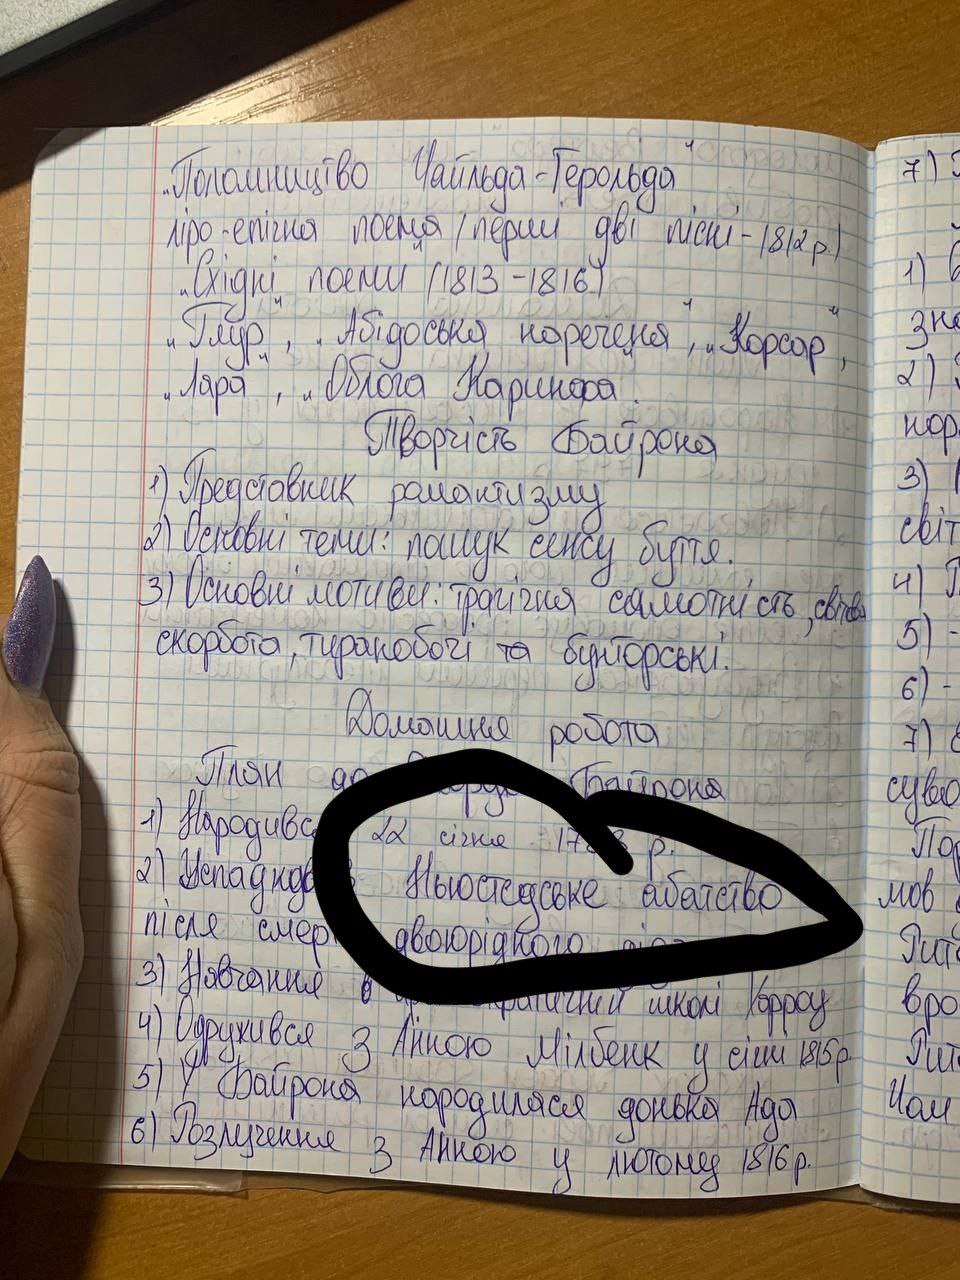 „Паломництво Чайльда-Герольда"
ліро-епічна поема (перші дві пісні - 1812 р.)
„Східні поеми" (1813 - 1816)
„Гяур", „Абідоська наречена", „Корсар",
„Лара", „Облога Каринфа".
Творчість Байрона
1) Представник романтизму
2) Основні теми: пошук сенсу буття.
3) Основні мотиви: трагічна самотність, світова
скорбота, тираноборчі та бунтарські.
Домашня робота
План до Байрона
1) Народився 22 січня р.
2) Успадкував Ньюстедське абатство
після двоюрідного
3) Навчання школі Харроу
4) Одружився з Анною Мілбенк у січні 1815 р.
5) У Байрона народилася донька Ада
6) Розлучення з Анною у лютому 1816 р.
7)
1)
2)
3)
світ
4)
5) -
6) -
7)
мов